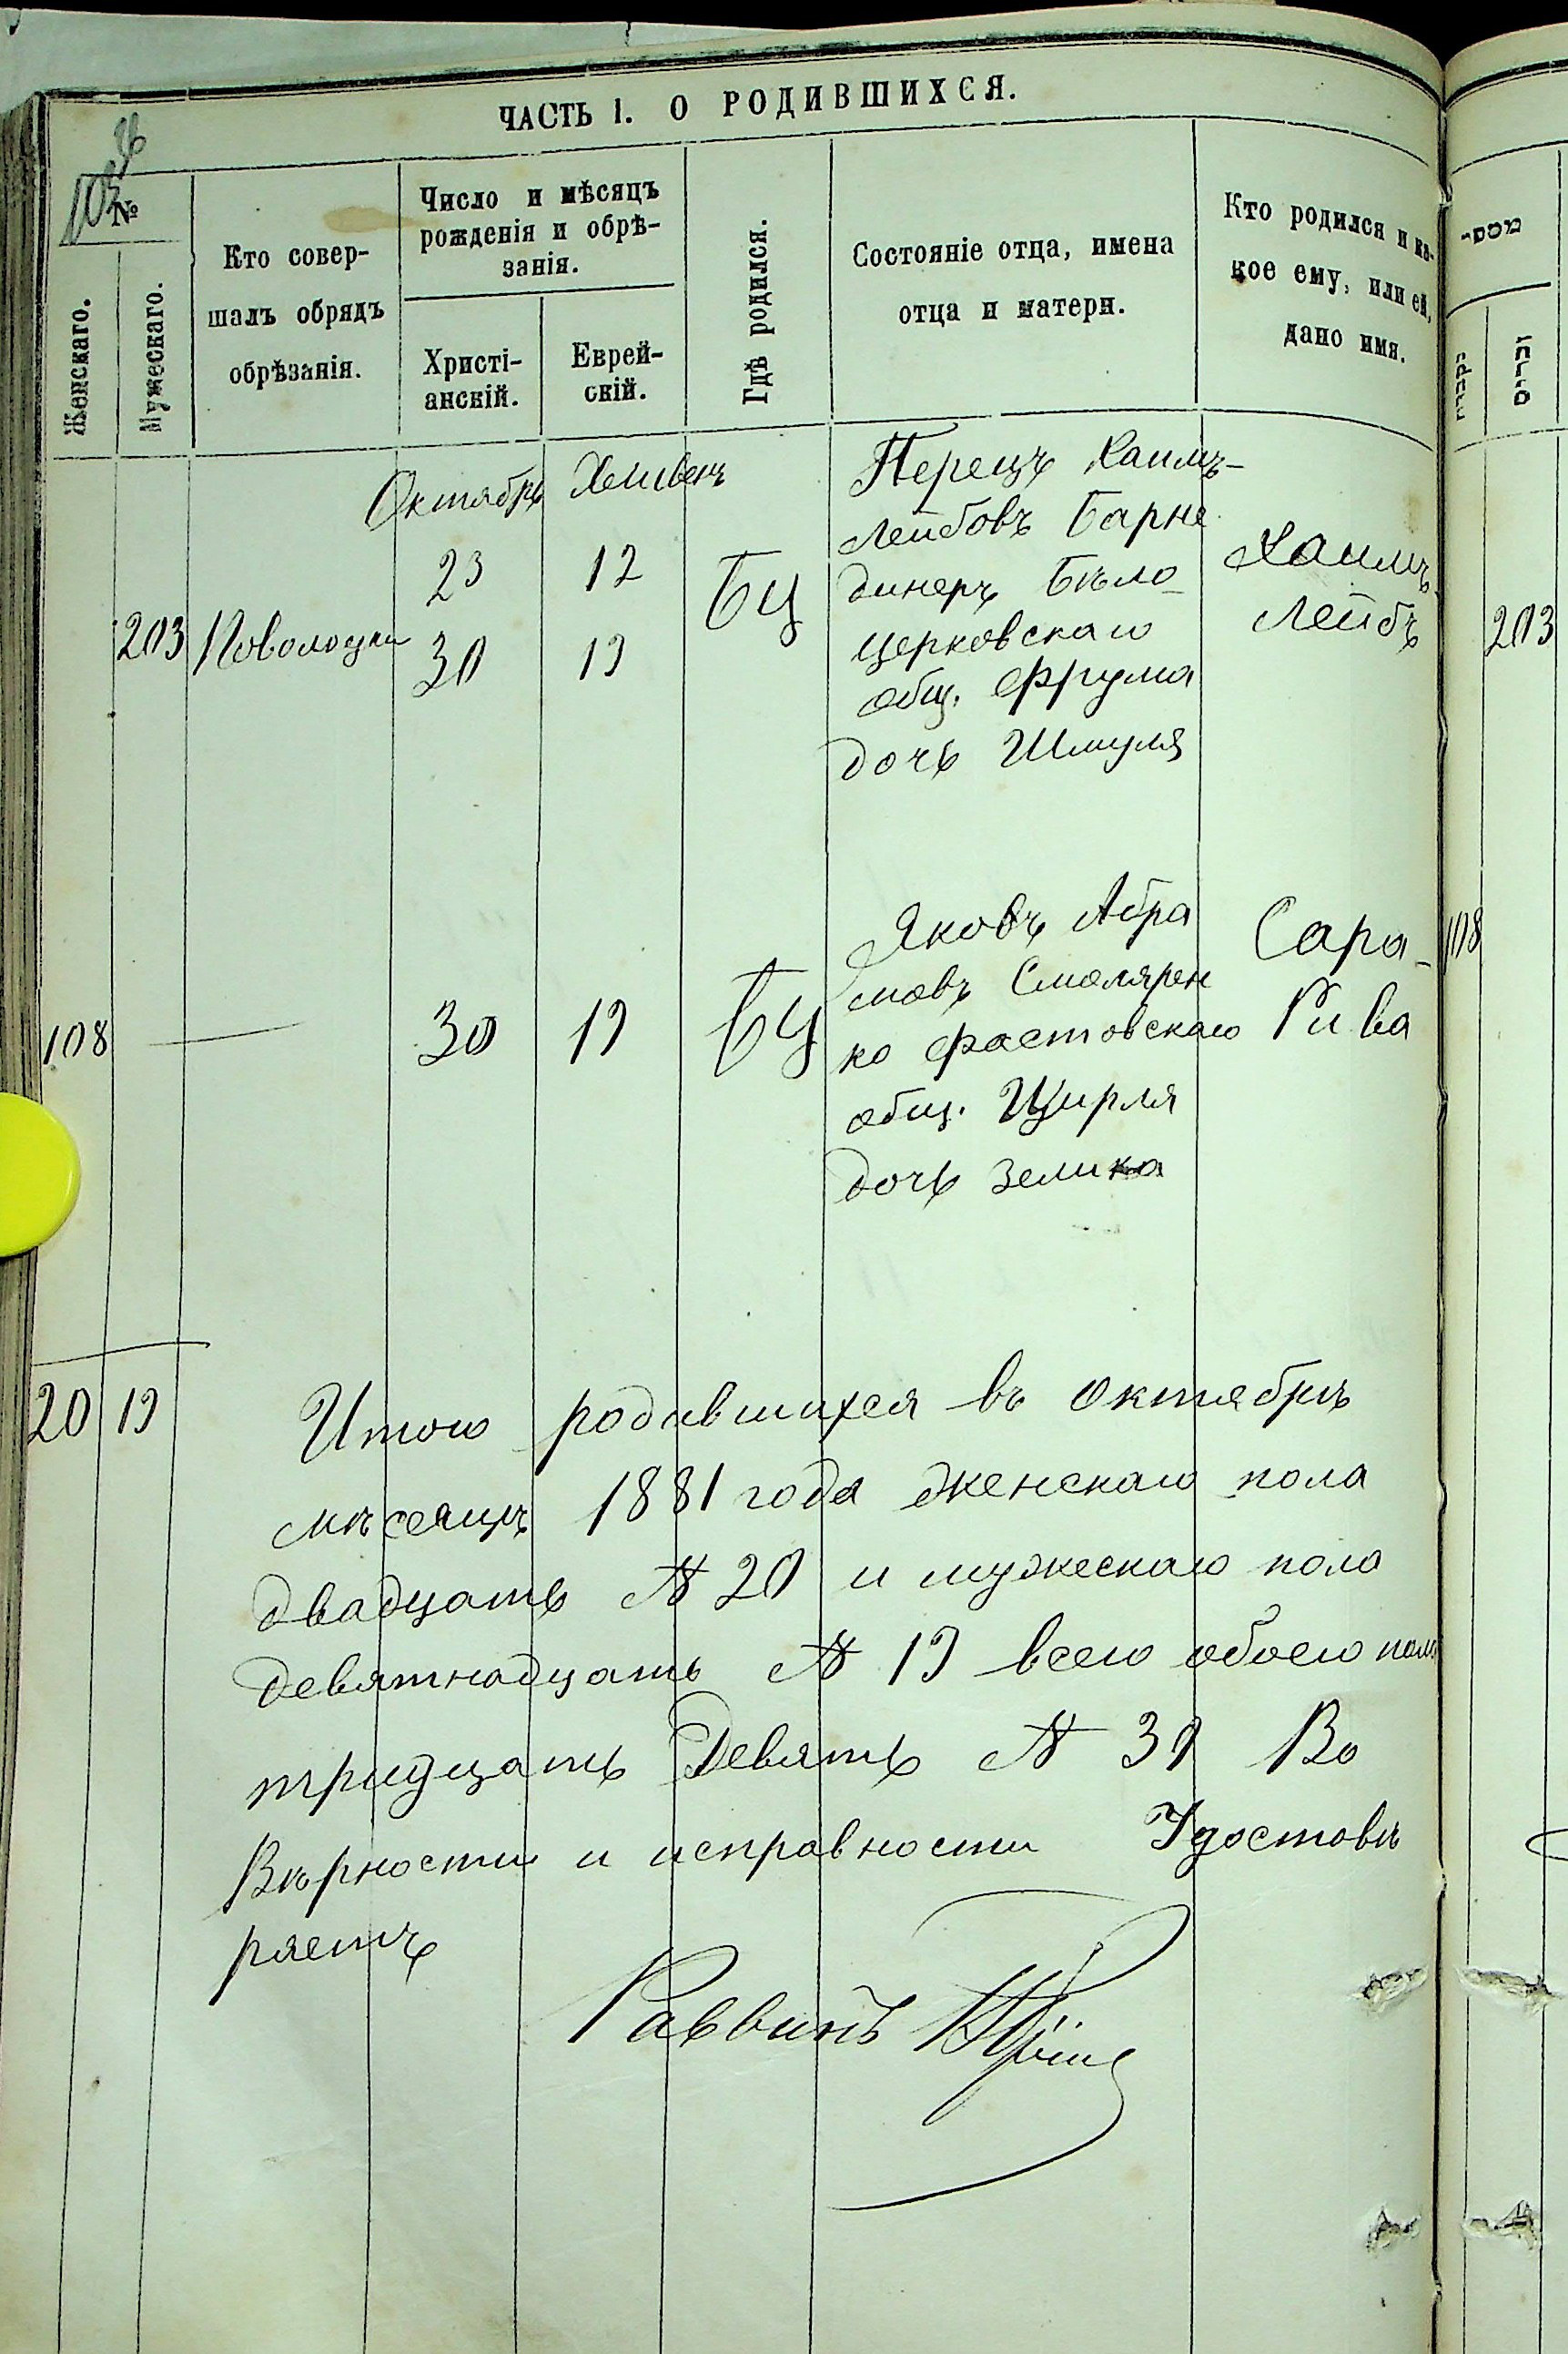 ЧАСТЬ I. О РОДИВШИХСЯ.
№
Женскаго.
Мужескаго.
Кто совер-
шалъ обрядъ
обрѣзанія.
Число и мѣсяцъ
рожденія и обрѣ-
занія.
Христі-
анскій.
Еврей-
скій.
Гдѣ родился.
Состояніе отца, имена
отца и матери.
Кто родился и ка-
кое ему, или ей,
дано имя.
Октябрь Хешвенъ
203 Поволоцкій
23 12
30 19
БЦ
Перецъ Хаимъ-
Лейбовъ Барне
динеръ Бѣло-
церковскаго
общ. Фрума
дочь Шмуля
Хаимъ
Лейбъ
203
108
30 19
БЦ
Яковъ Абра
мовъ Смолярен
ко Фастовскаго
общ. Цирля
дочь Зелика
Сара-
Рива
108
20 19
Итого родившихся въ Октябрѣ
мѣсяцѣ 1881 года женскаго пола
двадцать № 20 и мужескаго пола
девятнадцать № 19 всего обоего пола
тридцать Девять № 39 Во
Вѣрности и исправности Удостовѣ
ряетъ
Раввинъ